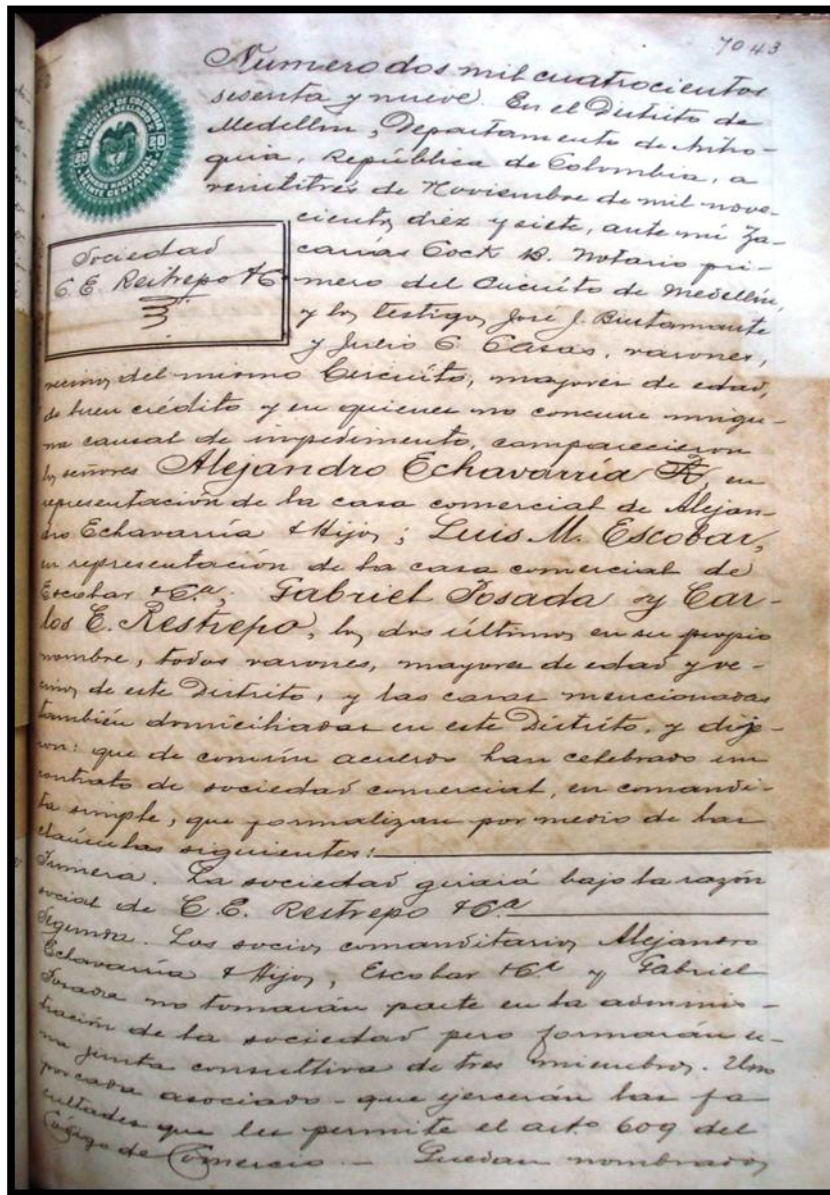 7043
Numero dos mil cuatrocientos
sesenta y nueve. En el Distrito de
Medellín, Departamento de Antio-
quia, República de Colombia, a
veintitrés de Noviembre de mil nove-
cientos diez y siete, ante mí Za-
carías Cock B. Notario pri-
mero del Circuito de Medellín,
y los testigos José J. Bustamante
y Julio C. Casas, varones,
vecinos del mismo Circuito, mayores de edad,
de buen crédito y en quienes no concurre ningu-
na causal de impedimento, comparecieron
los señores Alejandro Echavarría R, en
representación de la casa comercial de Alejan-
dro Echavarría & Hijos; Luis M. Escobar,
en representación de la casa comercial de
Escobar & Cª; Gabriel Posada y Car-
los E. Restrepo, los dos últimos en su propio
nombre, todos varones, mayores de edad y ve-
cinos de este Distrito, y las casas mencionadas
también domiciliadas en este Distrito, y dije-
ron: que de común acuerdo han celebrado un
contrato de sociedad comercial, en comandi-
ta simple, que formalizan por medio de las
cláusulas siguientes:
Primera. La sociedad girará bajo la razón
social de C. E. Restrepo & Cª
Segunda. Los socios comanditarios Alejandro
Echavarría & Hijos, Escobar & Cª y Gabriel
Posada no tomarán parte en la adminis-
tración de la sociedad pero formarán u-
na junta consultiva de tres miembros. Uno
por cada asociado - que ejercerán las fa-
cultades que les permite el artº 609 del
Código de Comercio. - Quedan nombrados
REPUBLICA DE COLOMBIA
PAPEL SELLADO
20 20
TIMBRE NACIONAL
VEINTE CENTAVOS
Sociedad
C. E. Restrepo & Cª